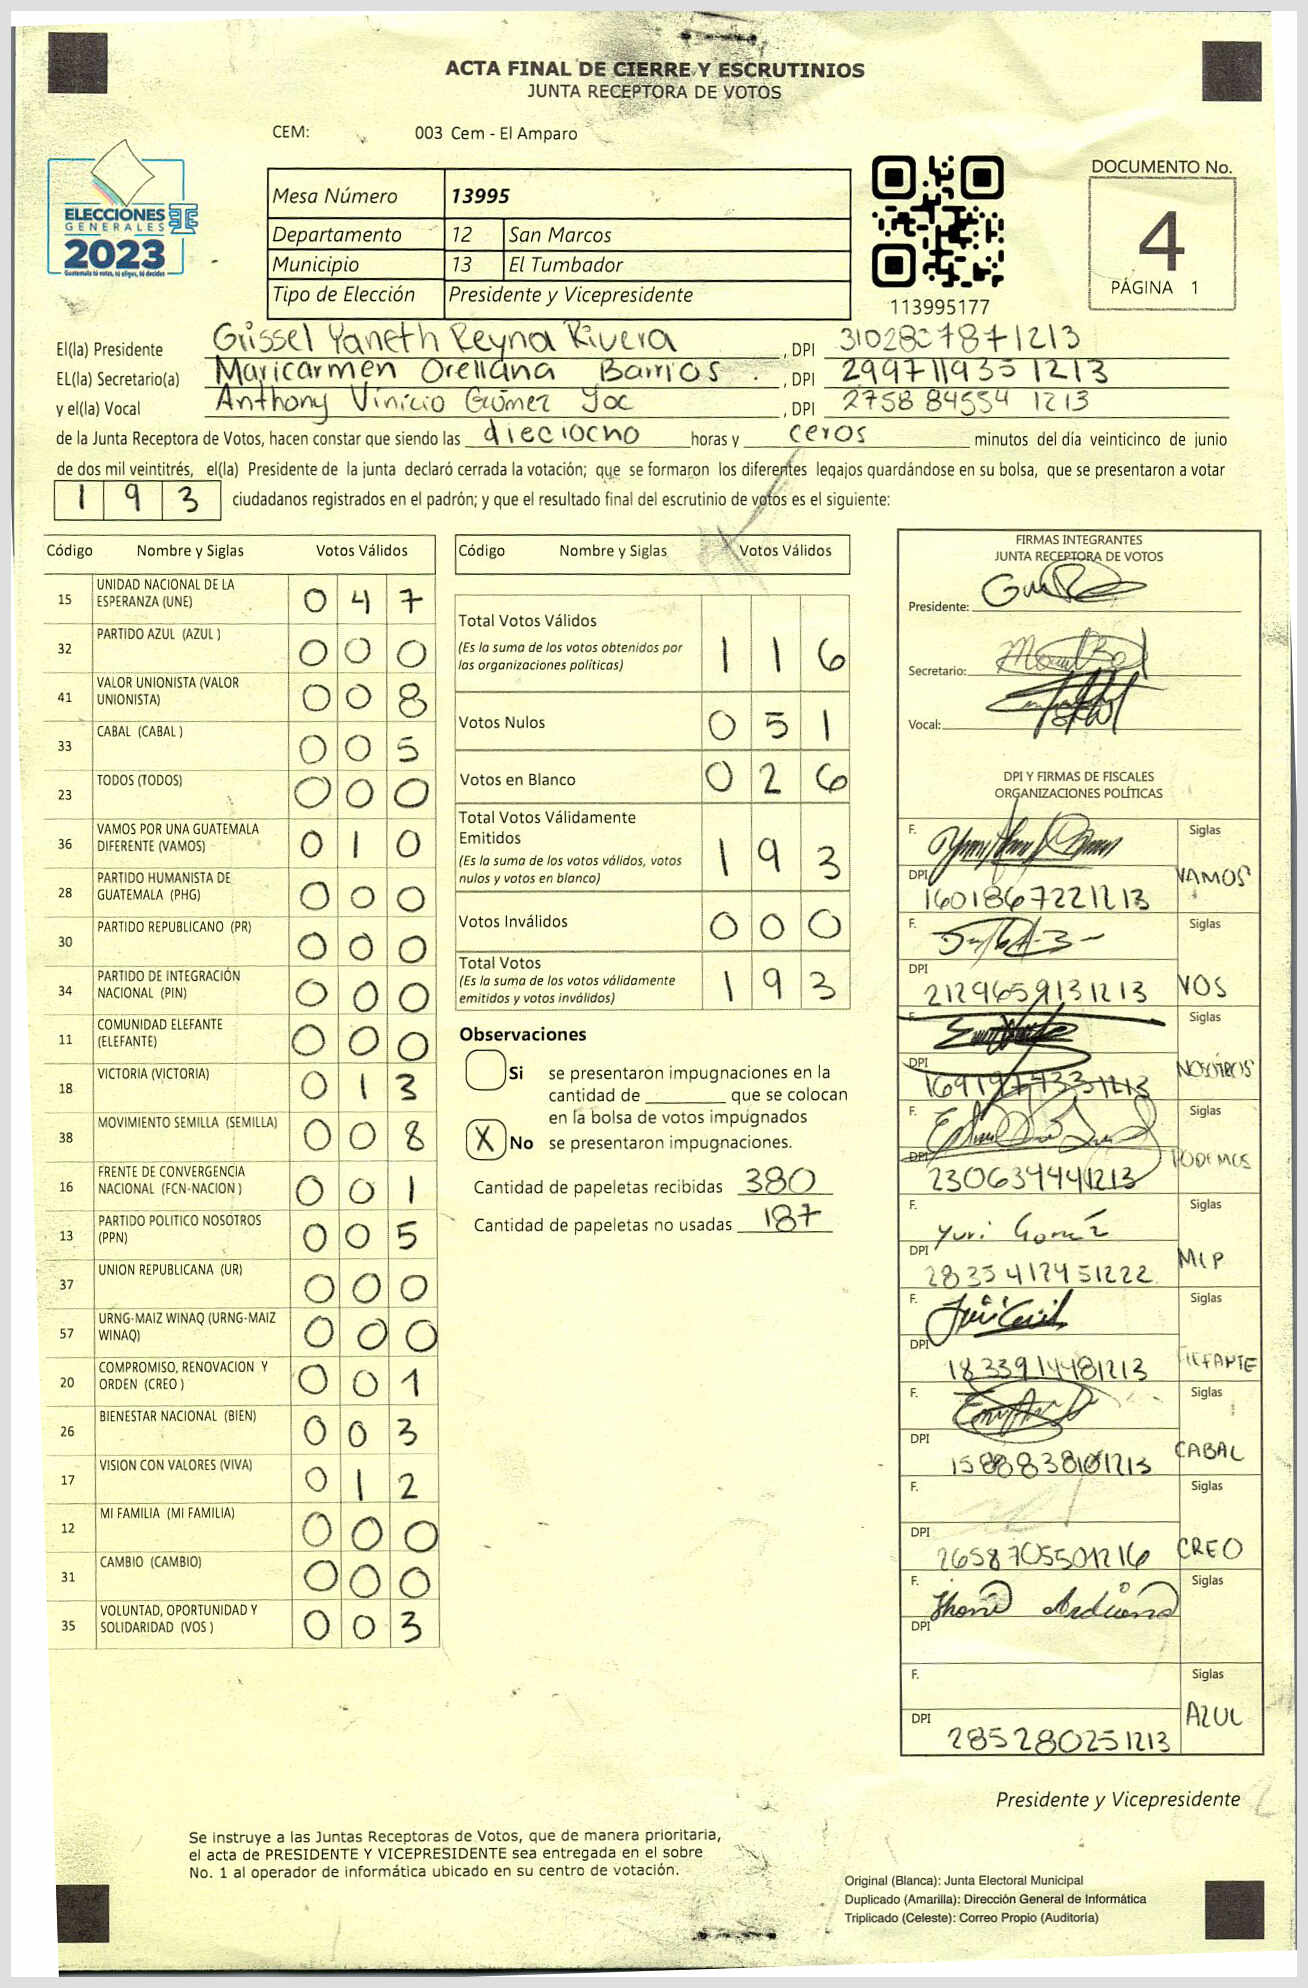 ACTA FINAL DE CIERRE Y ESCRUTINIOS
JUNTA RECEPTORA DE VOTOS
CEM: 003 Cem - El Amparo
ELECCIONES
GENERALES
2023
Guatemala tú votas, tú eliges, tú decides
Mesa Número 13995
Departamento 12 San Marcos
Municipio 13 El Tumbador
Tipo de Elección Presidente y Vicepresidente
113995177
DOCUMENTO No.
4
PÁGINA 1
El(la) Presidente Grissel Yaneth Reyna Rivera, DPI
EL(la) Secretario(a) Maricarmen Orellana Barrios., DPI 2997119351213
y el(la) Vocal Anthony Vinicio Gómez Joc, DPI 2758 84554 1213
de la Junta Receptora de Votos, hacen constar que siendo las dieciocho horas y ceros minutos del día veinticinco de junio
de dos mil veintitrés, el(la) Presidente de la junta declaró cerrada la votación; que se formaron los diferentes legajos guardándose en su bolsa, que se presentaron a votar
193 ciudadanos registrados en el padrón; y que el resultado final del escrutinio de votos es el siguiente:
Código Nombre y Siglas Votos Válidos
15 UNIDAD NACIONAL DE LA ESPERANZA (UNE) 047
32 PARTIDO AZUL (AZUL ) 000
41 VALOR UNIONISTA (VALOR UNIONISTA) 008
33 CABAL (CABAL ) 005
23 TODOS (TODOS) 000
36 VAMOS POR UNA GUATEMALA DIFERENTE (VAMOS) 010
28 PARTIDO HUMANISTA DE GUATEMALA (PHG) 000
30 PARTIDO REPUBLICANO (PR) 000
34 PARTIDO DE INTEGRACIÓN NACIONAL (PIN) 000
11 COMUNIDAD ELEFANTE (ELEFANTE) 000
18 VICTORIA (VICTORIA) 013
38 MOVIMIENTO SEMILLA (SEMILLA) 008
16 FRENTE DE CONVERGENCIA NACIONAL (FCN-NACION ) 001
13 PARTIDO POLITICO NOSOTROS (PPN) 005
37 UNION REPUBLICANA (UR) 000
57 URNG-MAIZ WINAQ (URNG-MAIZ WINAQ) 000
20 COMPROMISO, RENOVACION Y ORDEN (CREO ) 001
26 BIENESTAR NACIONAL (BIEN) 003
17 VISION CON VALORES (VIVA) 012
12 MI FAMILIA (MI FAMILIA) 000
31 CAMBIO (CAMBIO) 000
35 VOLUNTAD, OPORTUNIDAD Y SOLIDARIDAD (VOS ) 003
Código Nombre y Siglas Votos Válidos
Total Votos Válidos
(Es la suma de los votos obtenidos por
las organizaciones políticas) 116
Votos Nulos 051
Votos en Blanco 026
Total Votos Válidamente
Emitidos
(Es la suma de los votos válidos, votos
nulos y votos en blanco) 193
Votos Inválidos 000
Total Votos
(Es la suma de los votos válidamente
emitidos y votos inválidos) 193
Observaciones
Si se presentaron impugnaciones en la
cantidad de ________ que se colocan
en la bolsa de votos impugnados
X No se presentaron impugnaciones.
Cantidad de papeletas recibidas 380
Cantidad de papeletas no usadas 187
FIRMAS INTEGRANTES
JUNTA RECEPTORA DE VOTOS
Presidente:
Secretario:
Vocal:
DPI Y FIRMAS DE FISCALES
ORGANIZACIONES POLÍTICAS
F. Siglas
DPI 1601867221213 VAMOS
F. Siglas
DPI 2129659131213 VOS
F. Siglas
DPI NOSOTROS
F. Siglas
DPI 230634441213 PODEMOS
F. Yuri Siglas
DPI 2835417451222 MLP
F. Siglas
DPI 1833914481213 ELEFANTE
F. Siglas
DPI CABAL
F. Siglas
DPI 2658705501216 CREO
F. Siglas
DPI
F. Siglas
DPI 285280251213 AZUL
Presidente y Vicepresidente
Se instruye a las Juntas Receptoras de Votos, que de manera prioritaria,
el acta de PRESIDENTE Y VICEPRESIDENTE sea entregada en el sobre
No. 1 al operador de informática ubicado en su centro de votación.
Original (Blanca): Junta Electoral Municipal
Duplicado (Amarilla): Dirección General de Informática
Triplicado (Celeste): Correo Propio (Auditoría)